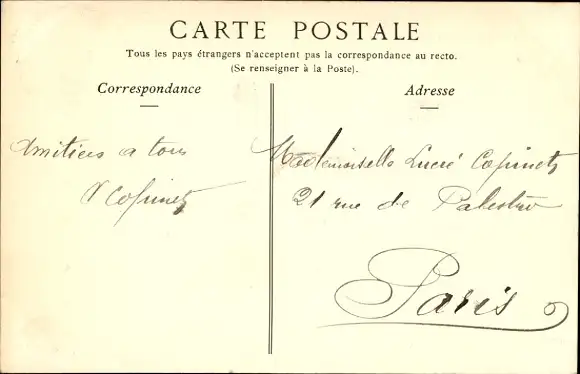 CARTE POSTALE
Tous les pays étrangers n'acceptent pas la correspondance au recto.
(Se renseigner à la Poste).
Correspondance
Adresse
Amitiés a tous
Mademoiselle Copinet
21 rue de Palestro
Paris